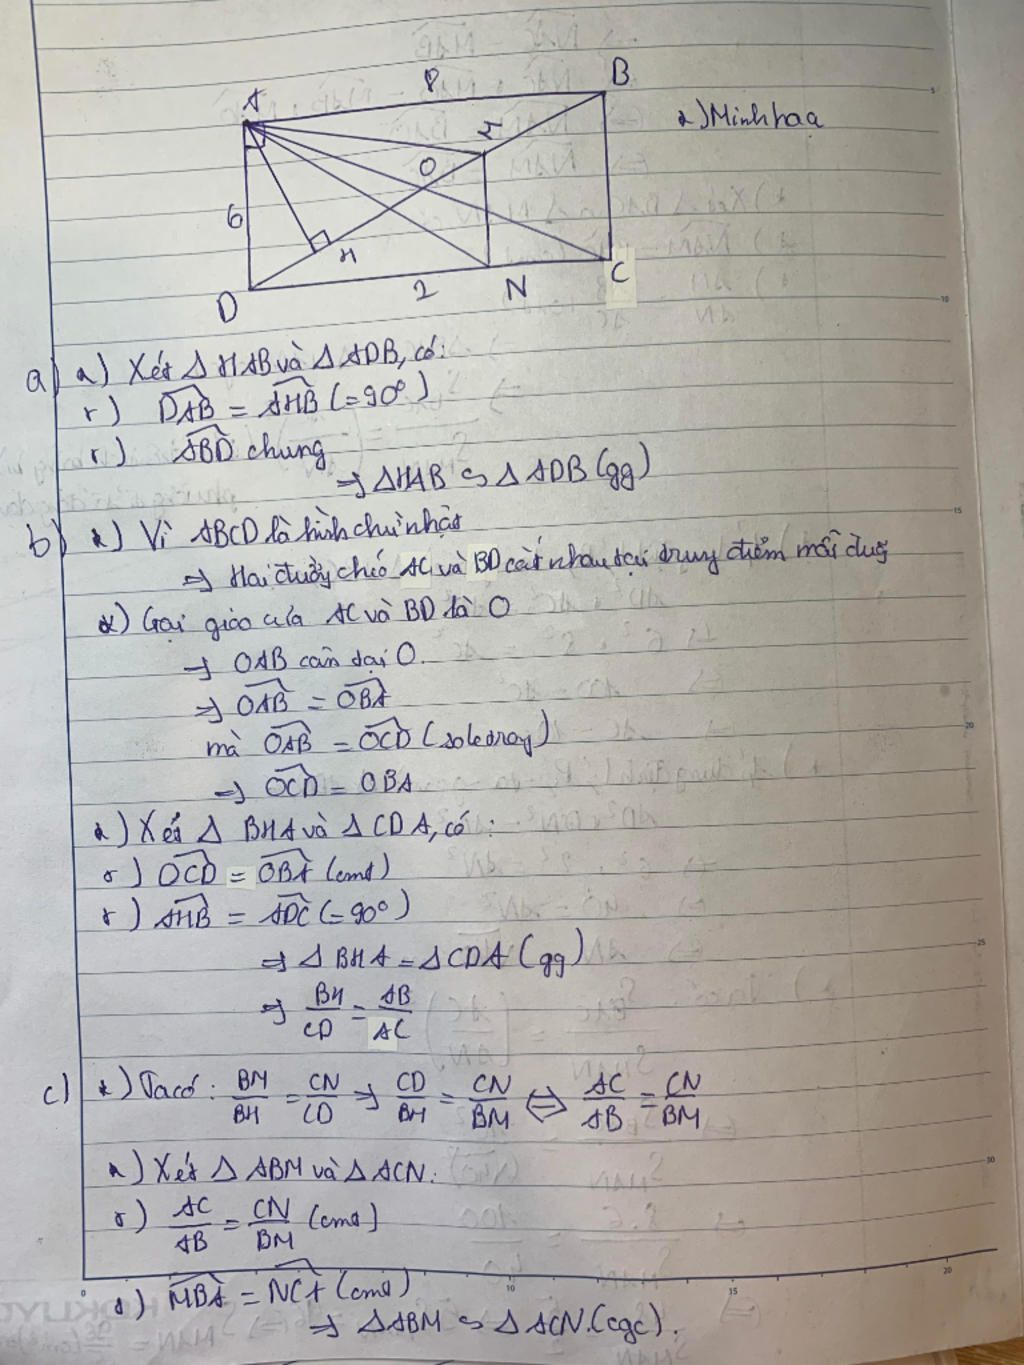 A
8
B
*) Minh hoạ
M
O
6
H
D
2
N
C
a) *) Xét Δ HAB và Δ ADB, có:
+) DAB = AHB (=90°)
+) ABD chung
⇒ ΔHAB ∽ Δ ADB (gg)
b) *) Vì ABCD là hình chữ nhật
⇒ Hai đường chéo AC và BD cắt nhau tại trung điểm mỗi đường
*) Gọi giao của AC và BD là O
⇒ OAB cân tại O.
⇒ OAB = OBA
mà OAB = OCD (so le trong)
⇒ OCD = OBA
*) Xét Δ BHA và Δ CDA, có:
+) OCD = OBA (cmt)
+) AHB = ADC (=90°)
⇒ Δ BHA = Δ CDA (gg)
⇒ BH/CD = AB/AC
c) *) Ta có: BM/BH = CN/CD ⇒ CD/BH = CN/BM ⇔ AC/AB = CN/BM
*) Xét Δ ABM và Δ ACN:
+) AC/AB = CN/BM (cmt)
+) MBA = NCA (cmt)
⇒ ΔABM ∽ Δ ACN. (cgc).